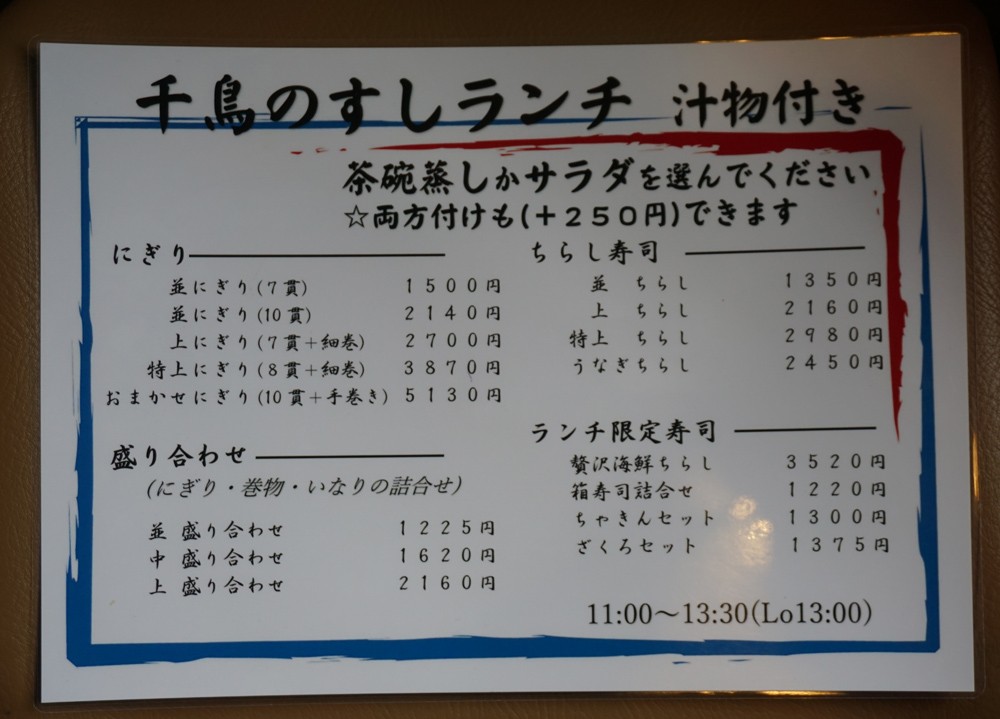 千鳥のすしランチ 汁物付き
茶碗蒸しかサラダを選んでください
☆両方付けも(+250円)できます
にぎり
並にぎり(7貫) 1500円
並にぎり(10貫) 2140円
上にぎり(7貫+細巻) 2700円
特上にぎり(8貫+細巻) 3870円
おまかせにぎり(10貫+手巻き) 5130円
盛り合わせ
(にぎり・巻物・いなりの詰合せ)
並 盛り合わせ 1225円
中 盛り合わせ 1620円
上 盛り合わせ 2160円
ちらし寿司
並 ちらし 1350円
上 ちらし 2160円
特上 ちらし 2980円
うなぎちらし 2450円
ランチ限定寿司
贅沢海鮮ちらし 3520円
箱寿司詰合せ 1220円
ちゃきんセット 1300円
ざくろセット 1375円
11:00〜13:30(Lo13:00)